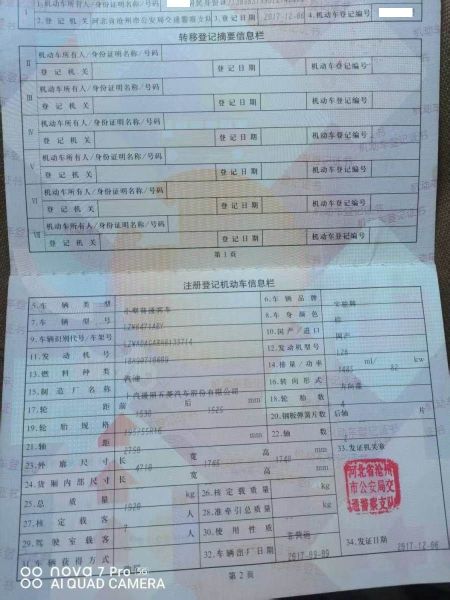 2.登记机关 河北省沧州市公安局交通警察支队 3.登记日期 2017-12-06 4.机动车登记编号
转移登记摘要信息栏
Ⅱ 机动车所有人/身份证明名称/号码
登记机关 登记日期 机动车登记编号
Ⅲ 机动车所有人/身份证明名称/号码
登记机关 登记日期 机动车登记编号
Ⅳ 机动车所有人/身份证明名称/号码
登记机关 登记日期 机动车登记编号
Ⅴ 机动车所有人/身份证明名称/号码
登记机关 登记日期 机动车登记编号
Ⅵ 机动车所有人/身份证明名称/号码
登记机关 登记日期 机动车登记编号
Ⅶ 机动车所有人/身份证明名称/号码
登记机关 登记日期 机动车登记编号
第1页
注册登记机动车信息栏
5.车辆类型 小型普通客车 6.车辆品牌 宝骏牌
7.车辆型号 LZW6471ABY 8.车身颜色
9.车辆识别代号/车架号 10.国产/进口 国产
11.发动机号 12.发动机型号 L2B
13.燃料种类 汽油 14.排量/功率 1485 ml/ 82 kw
15.制造厂名称 上汽通用五菱汽车股份有限公司 16.转向形式 方向盘
17.轮距 前 1530 后 1525 mm 18.轮胎数 4
19.轮胎规格 195/55R16 20.钢板弹簧片数 后轴 片
21.轴距 2750 mm 22.轴数 2
23.外廓尺寸 长 4710 宽 1765 高 1740 mm 33.发证机关章
24.货厢内部尺寸 长 宽 高 mm
25.总质量 1920 kg 26.核定载质量 kg
27.核定载客 7 人 28.准牵引总质量 kg
29.驾驶室载客 人 30.使用性质 非营运
31.车辆获得方式 32.车辆出厂日期 34.发证日期 2017-12-06
河北省沧州
市公安局交
通警察支队
第2页
nova 7 Pro 5G
AI QUAD CAMERA